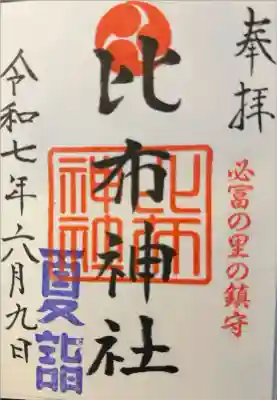 奉拝
必富の里の鎮守
比布神社
比布神社
令和七年六月九日
夏詣